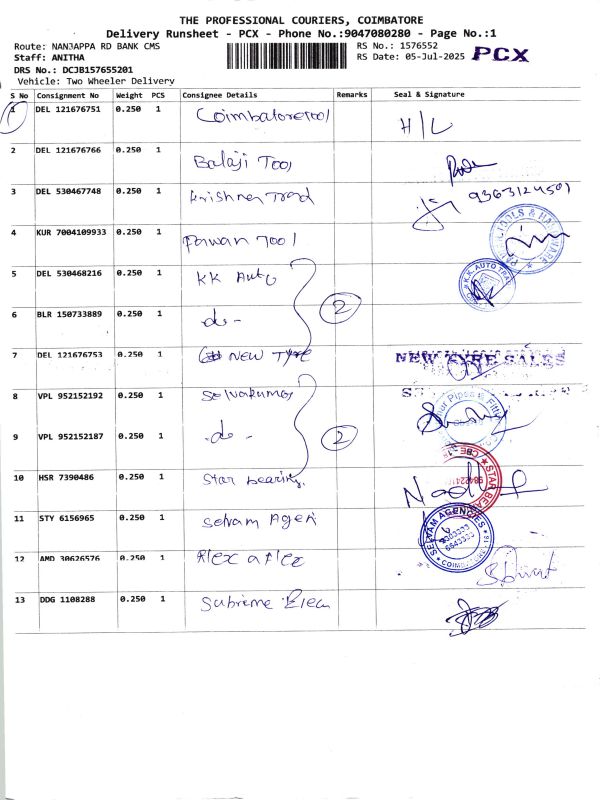 THE PROFESSIONAL COURIERS, COIMBATORE
Delivery Runsheet - PCX - Phone No.:9047080280 - Page No.:1
Route: NANJAPPA RD BANK CMS RS No.: 1576552
Staff: ANITHA RS Date: 05-Jul-2025 PCX
DRS No.: DCJB157655201
Vehicle: Two Wheeler Delivery
S No Consignment No Weight PCS Consignee Details Remarks Seal & Signature
1 DEL 121676751 0.250 1 Coimbatore Tool H/L
2 DEL 121676766 0.250 1 Balaji Tool
3 DEL 530467748 0.250 1 Krishna Trad 9363124501
4 KUR 7004109933 0.250 1 Pawan Tool TOOLS & HARDWARE
5 DEL 530468216 0.250 1 KK Auto K.K. AUTO
6 BLR 150733889 0.250 1 -do- 2
7 DEL 121676753 0.250 1 NEW Tyre NEW TYRE SALES
8 VPL 952152192 0.250 1 Selvakumar Pipes & Fitti
9 VPL 952152187 0.250 1 -do- 2
10 HSR 7390486 0.250 1 Star bearing. STAR BEA
11 STY 6156965 0.250 1 Selvam Agen SELVAM AGENCIES
12 AMD 30626576 0.250 1 Flex a flex
13 DDG 1108288 0.250 1 Subreme Elec